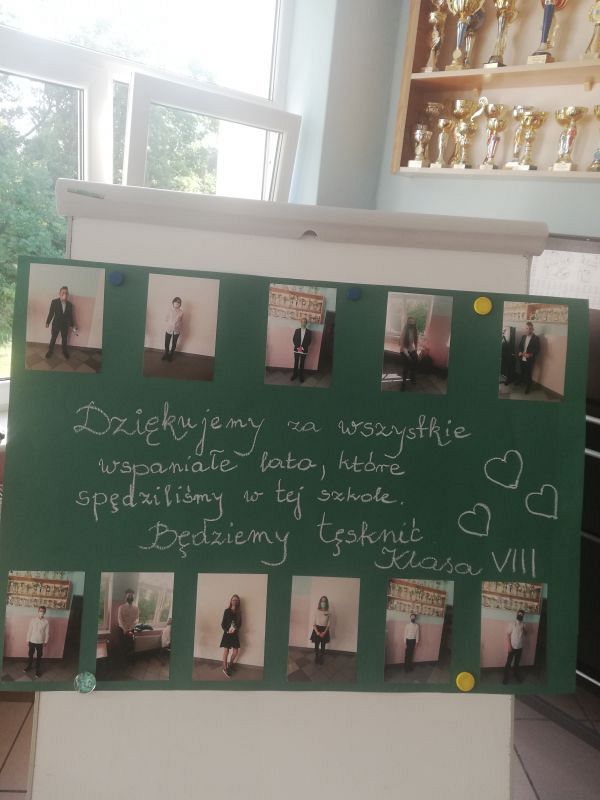 Dziękujemy za wszystkie
wspaniałe lata, które
spędziliśmy w tej szkole.
Będziemy tęsknić
Klasa VIII